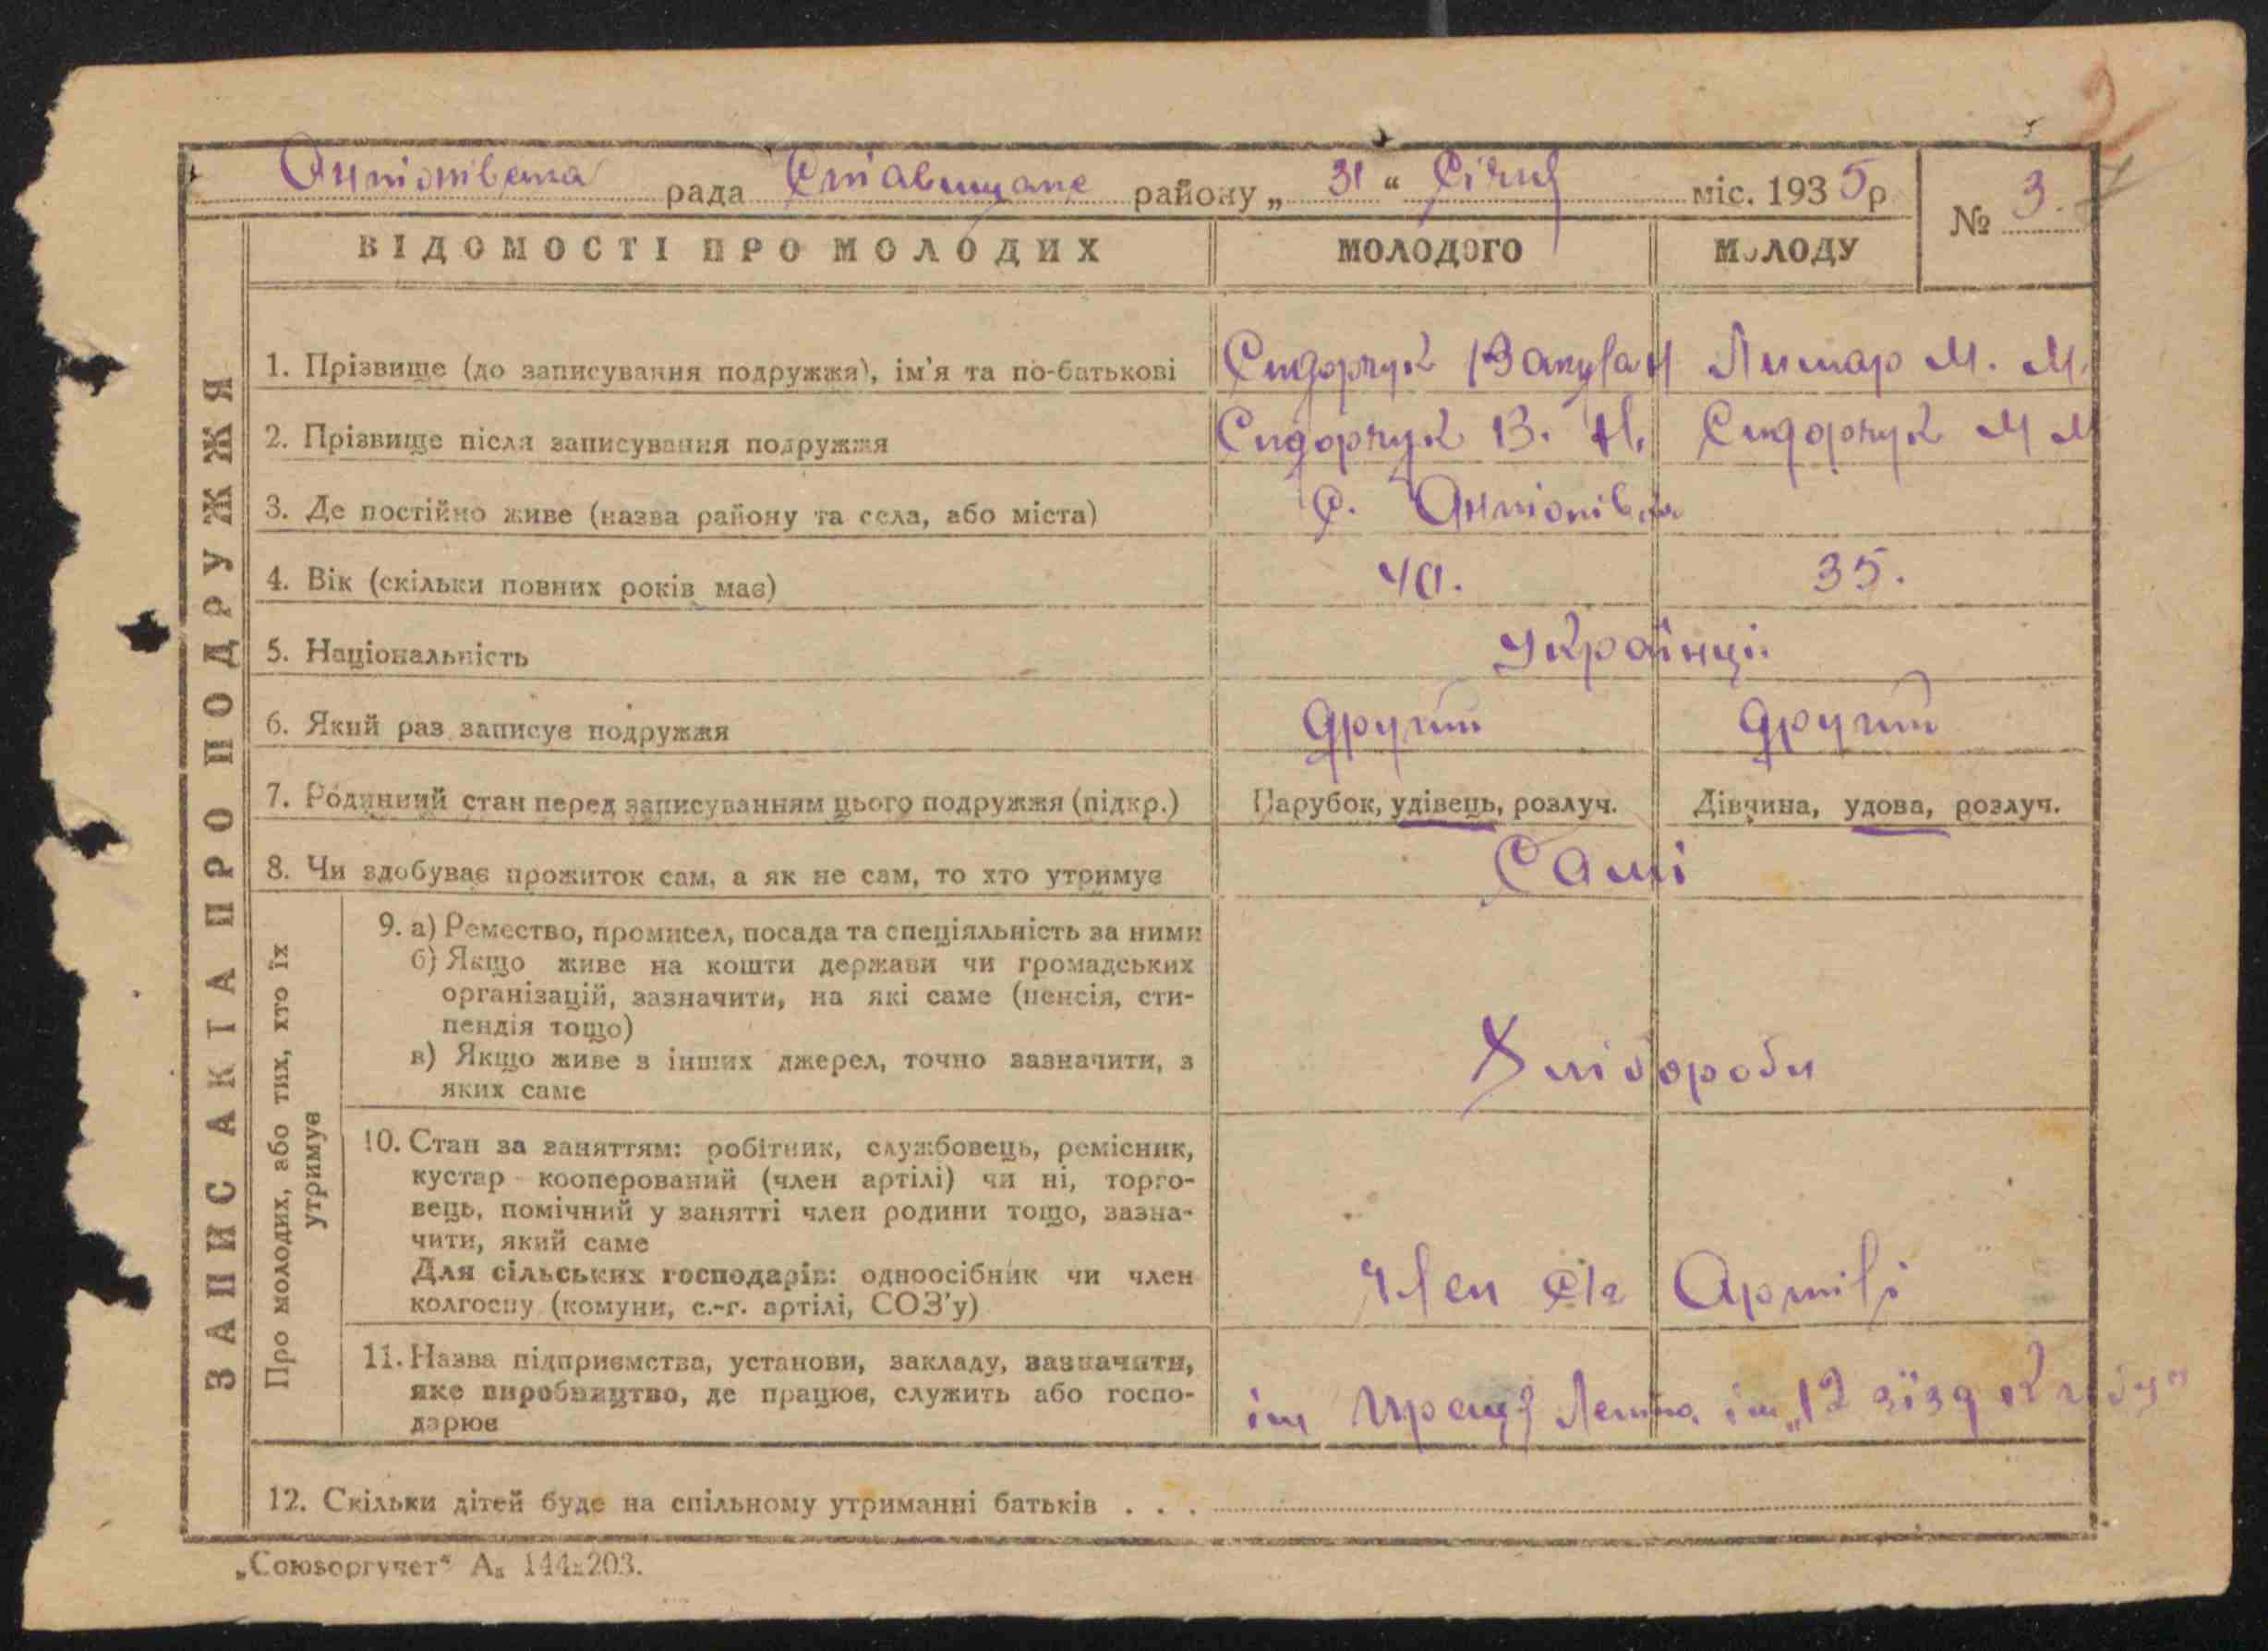 Антонівська рада Ставищане району „ 31 “ Січня міс. 1935 р № 3.
ВІДОМОСТІ ПРО МОЛОДИХ МОЛОДОГО МОЛОДУ
ЗАПИС АКТА ПРО ПОДРУЖЖЯ
1. Прізвище (до записування подружжя), ім'я та по-батькові Сидорчук Вакулан Лимар М. М.
2. Прізвище після записування подружжя Сидорчук В. Н. Сидорчук М М
3. Де постійно живе (назва району та села, або міста) С. Антонівка
4. Вік (скільки повних років має) 40. 35.
5. Національність Українці
6. Який раз записує подружжя другий другий
7. Родинний стан перед записуванням цього подружжя (підкр.) Парубок, удівець, розлуч. Дівчина, удова, розлуч.
8. Чи здобуває прожиток сам, а як не сам, то хто утримує Самі
Про молодих, або тих, хто їх
утримує
9. а) Ремество, промисел, посада та спеціяльність за ними
б) Якщо живе на кошти держави чи громадських
організацій, зазначити, на які саме (пенсія, сти-
пендія тощо)
в) Якщо живе з інших джерел, точно зазначити, з
яких саме
Хлібороби
10. Стан за заняттям: робітник, службовець, ремісник,
кустар - кооперований (член артілі) чи ні, торго-
вець, помічний у занятті член родини тощо, зазна-
чити, який саме
Для сільських господарів: одноосібник чи член
колгоспу (комуни, с.-г. артілі, СОЗ'у)
Член С/г Артілі
11. Назва підприємства, установи, закладу, зазначити,
яке виробництво, де працює, служить або госпо-
дарює
ім Праці Леніна ім „12 зїзд
12. Скільки дітей буде на спільному утриманні батьків . . .
„Союзоргучет“ А₅ 144х203.